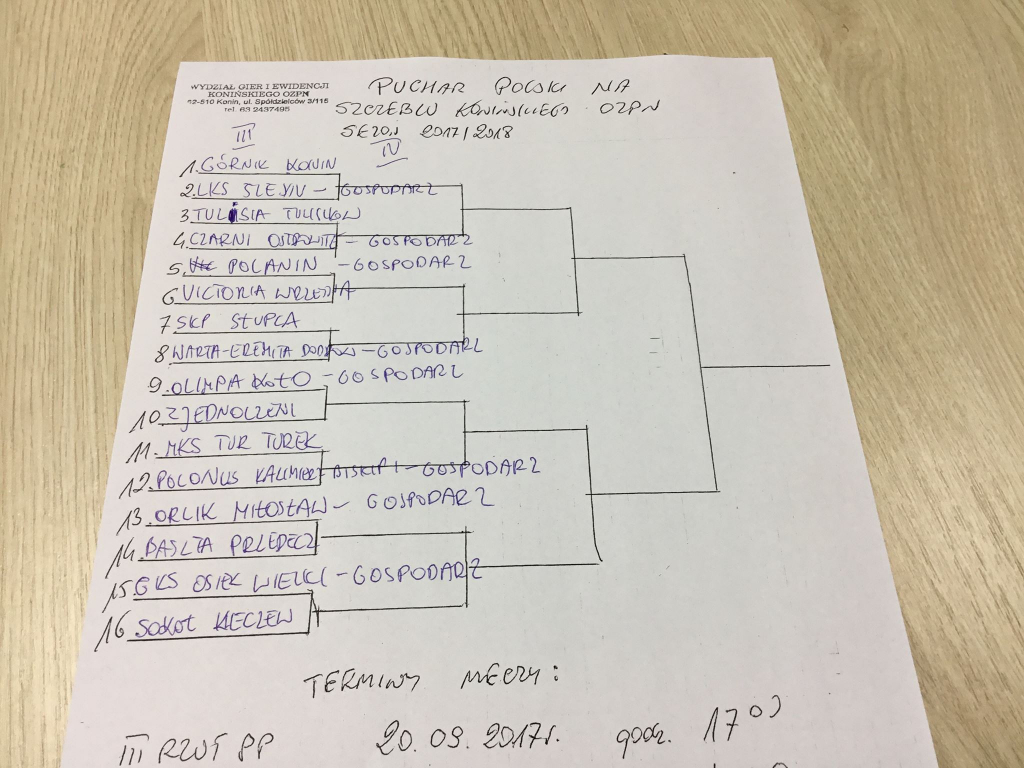 WYDZIAŁ GIER I EWIDENCJI
KONIŃSKIEGO OZPN
62-510 Konin, ul. Spółdzielców 3/115
tel. 63 2437495
PUCHAR POLSKI NA
SZCZEBLU KONIŃSKIEGO OZPN
SEZON 2017/2018
III IV
1. GÓRNIK KONIN
2. LKS ŚLESIN - GOSPODARZ
3 TULISIA TULISZKÓW
4. CZARNI OSTROWITE - GOSPODARZ
5. POLANIN - GOSPODARZ
6 VICTORIA WRZEŚNIA
7 SKP SŁUPCA
8 WARTA-EREMITA DOBRÓW - GOSPODARZ
9. OLIMPA KOŁO - GOSPODARZ
10. ZJEDNOCZENI
11. MKS TUR TUREK
12. POLONUS KAZIMIERZ BISKUPI - GOSPODARZ
13. ORLIK MIŁOSŁAW - GOSPODARZ
14. BASZTA PRZEDECZ
15. GKS OSIEK WIELKI - GOSPODARZ
16 SOKÓŁ KLECZEW
TERMINY MECZY:
III RZUT PP 20.09.2017r. godz. 17 00